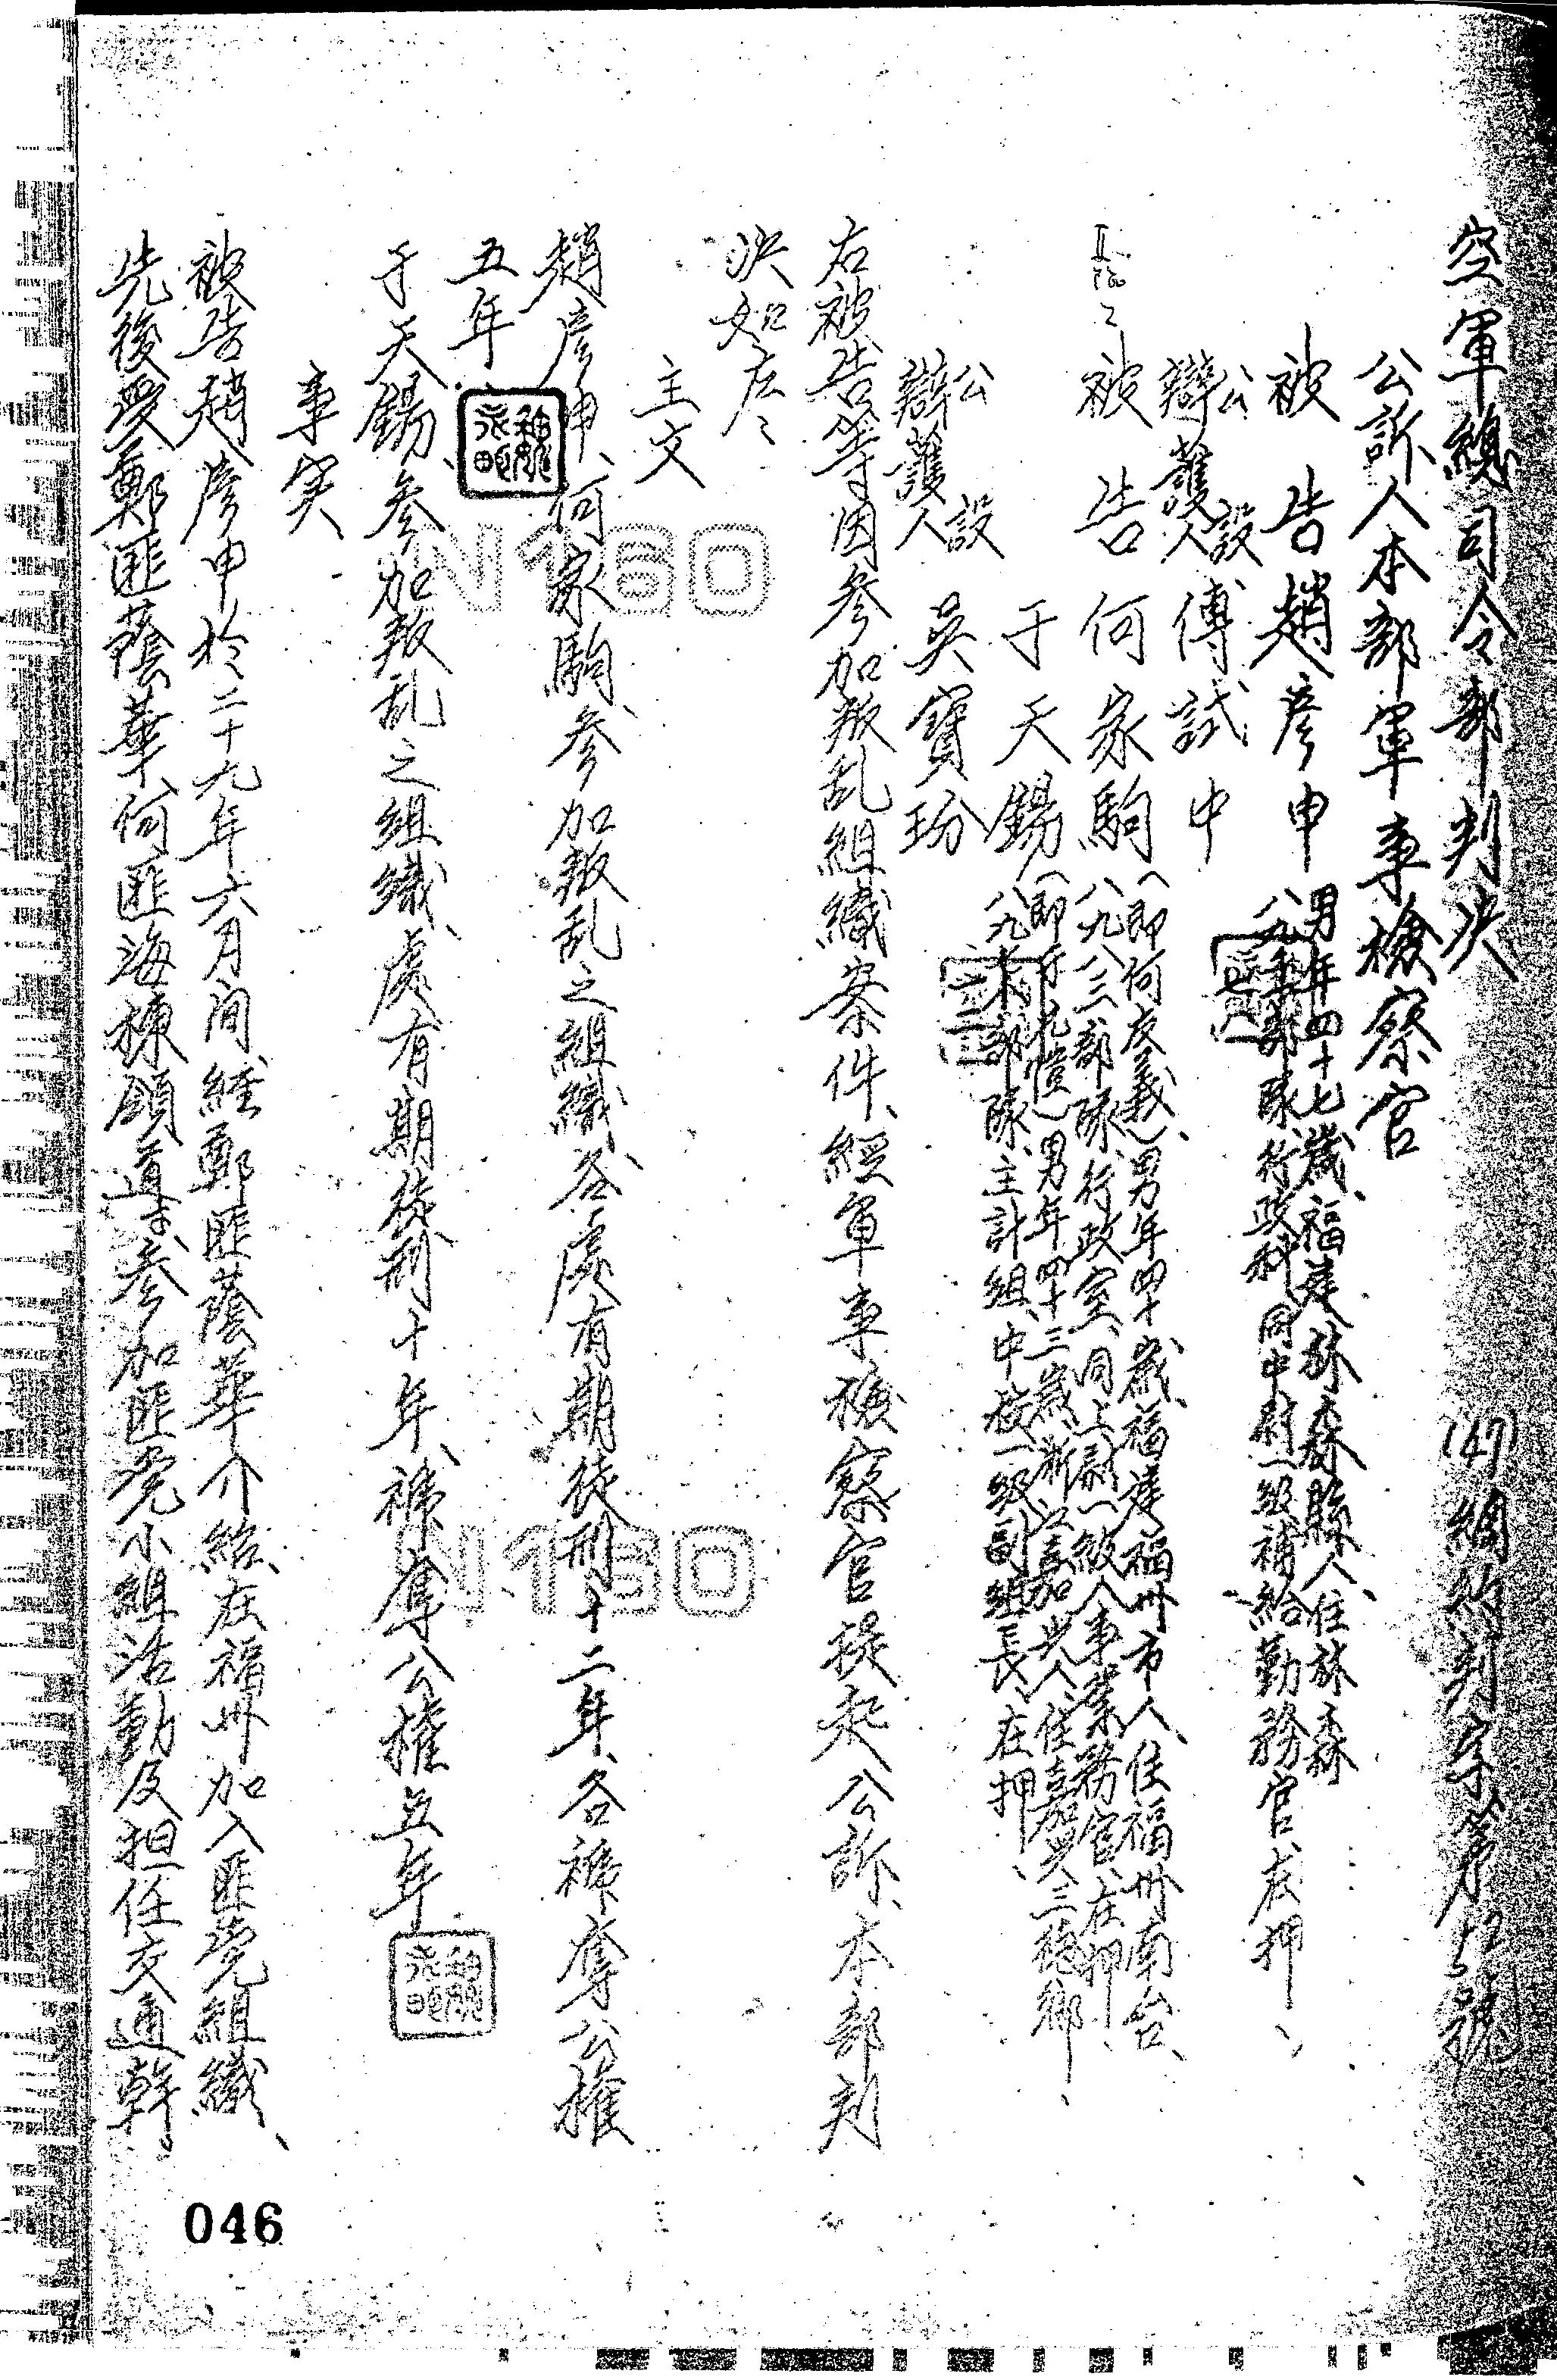 空軍總司令部判決 (47)綱約判字第12號
公訴人本部軍事檢察官
被告趙彥申 男年四十七歲、福建林森縣人、住林森
部隊行政科同中尉一級補給勤務官、在押、
公設辯護人 傅試中
被告何家駒(即何友義)、男年四十歲、福建福州市人、住福州南台、
八九八三部隊、行政室、同上尉一級人事業務官、在押、
于天錫 男年四十三歲、浙江嘉興人、住嘉興三塔鄉、
部隊、主計組、中校一級副組長、在押、
公設辯護人 吳寶玢
右被告等因參加叛乱組織案件、經軍事檢察官提起公訴、本部判
決如左、
主文
趙彥申、何家駒、參加叛乱之組織、各處有期徒刑十二年、各褫奪公權
五年、
于天錫、參加叛乱之組織、處有期徒刑十年、褫奪公權五年、
事実
被告趙彥申於二十九年六月间經鄭匪蔭華介紹、在福州加入匪党組織、
先後受鄭匪蔭華、何匪海棟領導、參加匪党小組活動及担任交通幹
046
N160
N160